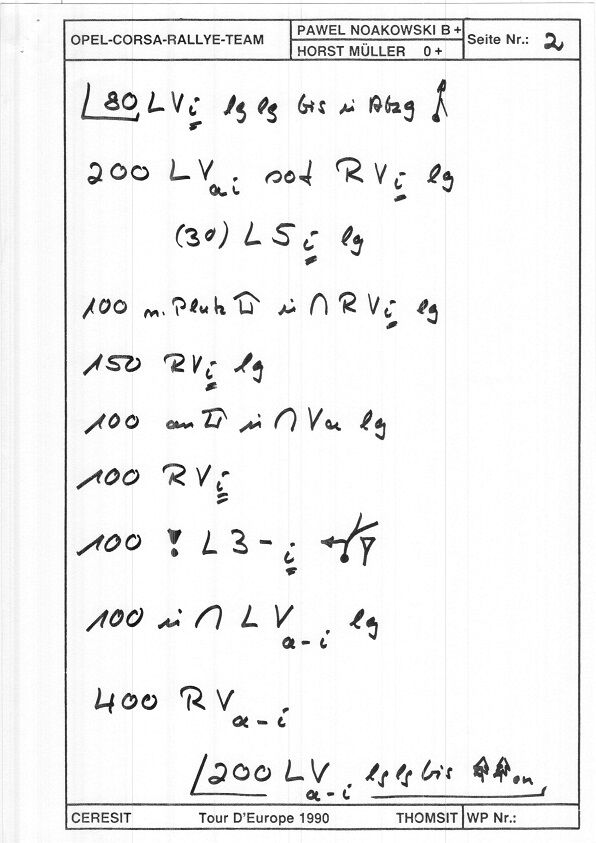 OPEL-CORSA-RALLYE-TEAM
PAWEL NOAKOWSKI B +
HORST MÜLLER 0 +
Seite Nr.: 2
80 LVi lg lg bis in Abzg
200 LVai sof RVi lg
(30) L5i lg
100 n. Platz in ∩ RVi lg
150 RVi lg
100 an in ∩ Va lg
100 RVi
100 ! L3-i
100 in ∩ LVa-i lg
400 RVa-i
200 LVa-i lg lg bis on
CERESIT Tour D'Europe 1990 THOMSIT WP Nr.: